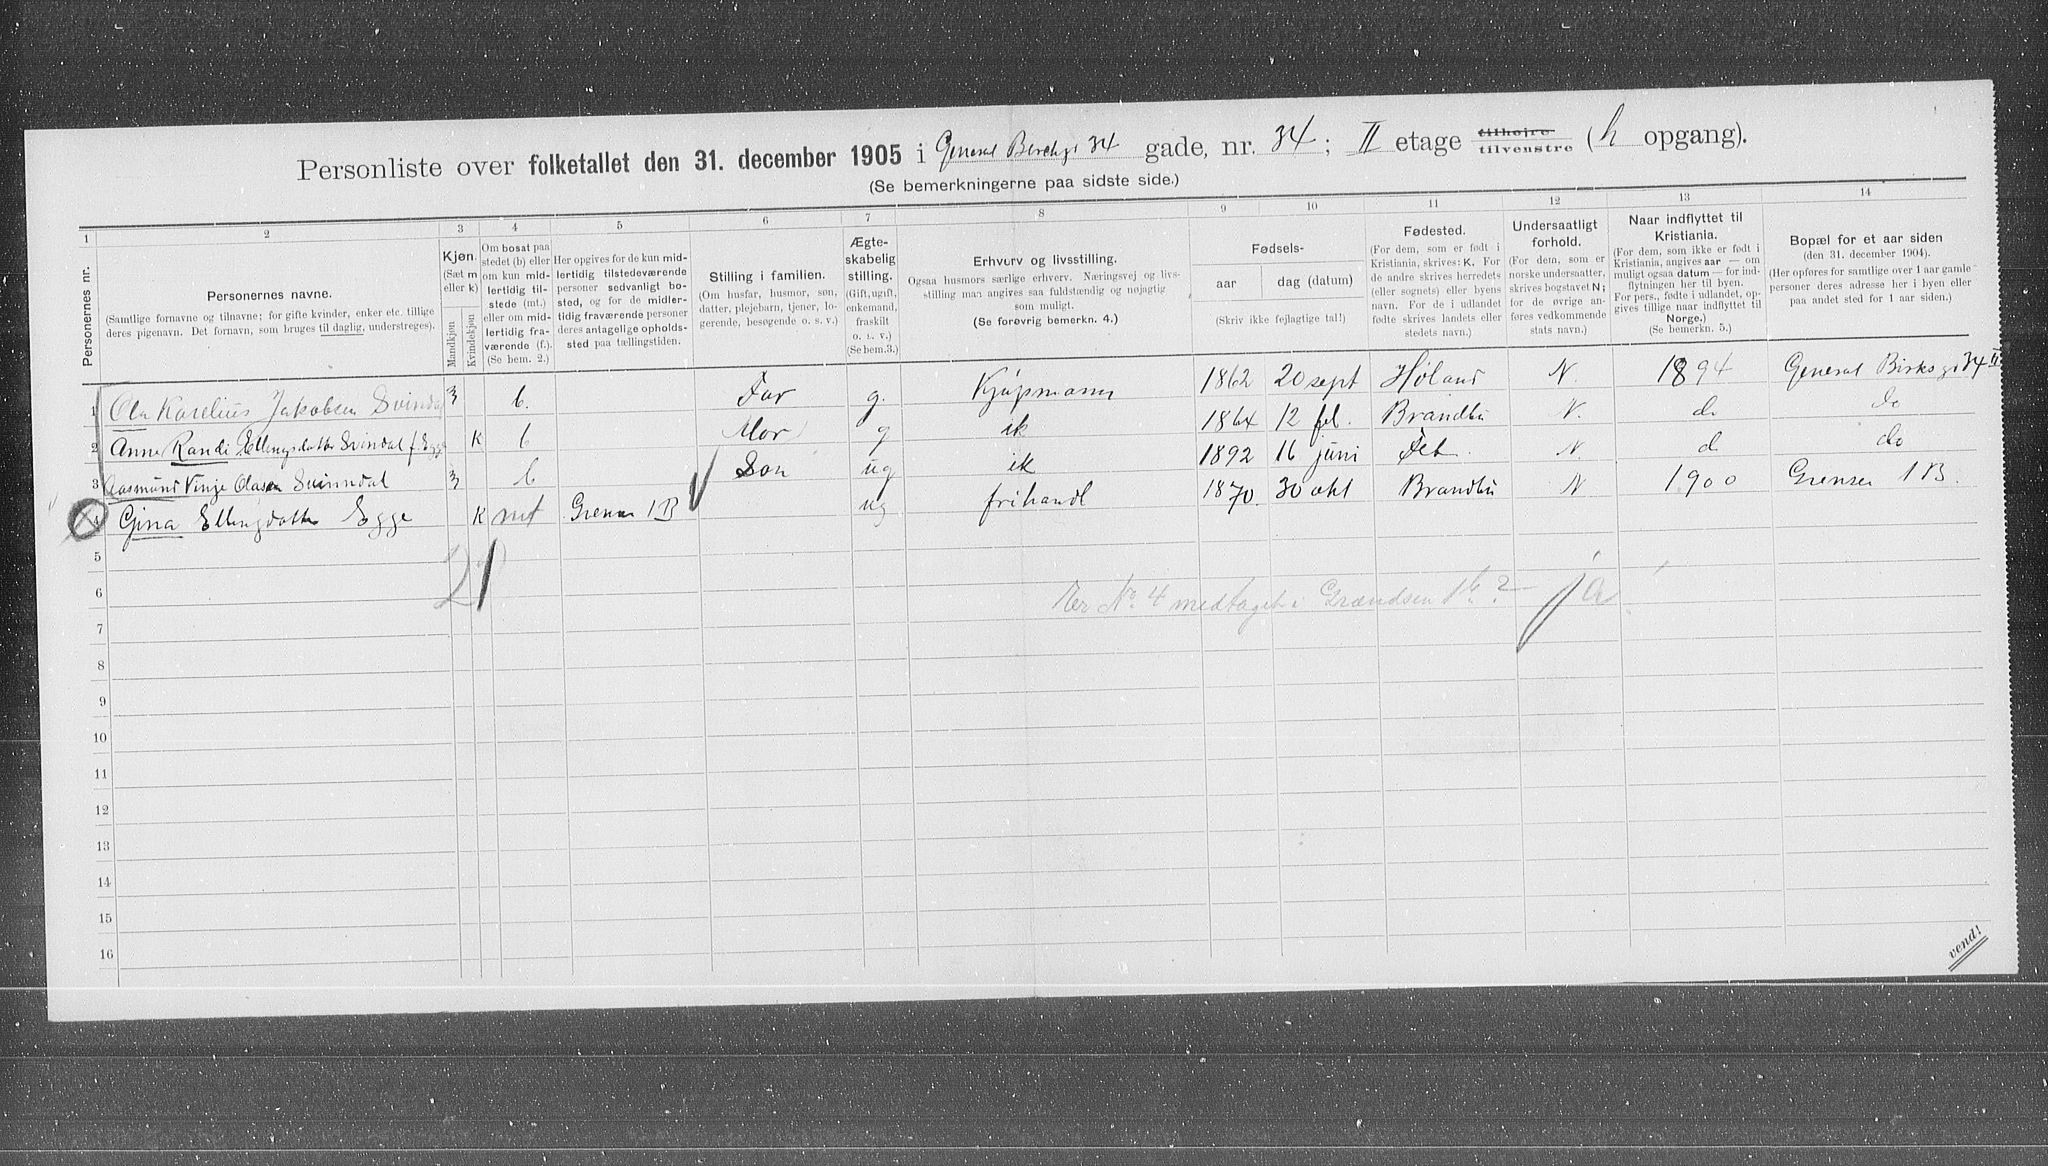 Personliste over folketallet den 31. december 1905 i General Birchs g 34 gade, nr. 34; II etage tilhøjre tilvenstre (h opgang).
(Se bemerkningerne paa sidste side.)
1 2 3 4 5 6 7 8 9 10 11 12 13 14
Personernes nr.
Personernes navne.
(Samtlige fornavne og tilnavne; for gifte kvinder, enker etc. tillige
deres pigenavn. Det fornavn, som bruges til daglig, understreges).
Kjøn.
(Sæt m
eller k)
Mandkjøn
Kvindekjøn
Om bosat paa
stedet (b) eller
om kun mid-
lertidig til-
stede (mt.)
eller om mid-
lertidig fra-
værende (f.).
(Se bem. 2.)
Her opgives for de kun mid-
lertidig tilstedeværende
personer sedvanligt bo-
sted, og for de midler-
tidig fraværende personer
deres antagelige opholds-
sted paa tællingstiden.
Stilling i familien.
(Om husfar, husmor, søn,
datter, plejebarn, tjener, lo-
gerende, besøgende o. s. v.)
Ægte-
skabelig
stilling.
(Gift, ugift,
enkemand,
fraskilt
o. s. v.)
(Se bem. 3.)
Erhvurv og livsstilling.
Ogsaa husmors særlige erhverv. Næringsvej og livs-
stilling maa angives saa fuldstændig og nøjagtig
som muligt.
(Se forøvrig bemerkn. 4.)
Fødsels-
aar
dag (datum)
(Skriv ikke fejlagtige tal!)
Fødested.
(For dem, som er født i
Kristiania, skrives: K. For
de andre skrives herredets
(eller sognets) eller byens
navn. For de i udlandet
fødte skrives landets eller
stedets navn.)
Undersaatligt
forhold.
(For dem, som er
norske undersaatter,
skrives bogstavet N;
for de øvrige an-
føres vedkommende
stats navn.)
Naar indflyttet til
Kristiania.
(For dem, som ikke er født i
Kristiania, angives aar — om
muligt ogsaa datum — for ind-
flytningen her til byen.
For pers., fødte i udlandet, op-
gives tillige naar indflyttet til
Norge.)
(Se bemerkn. 5.)
Bopæl for et aar siden
(den 31. december 1904).
(Her opføres for samtlige over 1 aar gamle
personer deres adresse her i byen eller
paa andet sted for 1 aar siden.)
1 Ola Karelius Jakobsen Svindal b. Far g. Kjøpmann 1862 20 sept Høland N. 1894 General Birks g 34 II
2 Anne Randi Ellingsdatter Svindal f. Egge K b Mor g ik 1864 12 feb. Brandbu N. do do
3 Aasmund Vinje Olasen Svinndal b Son ug ik 1892 16 juni Det N d do
4 Gina Ellengdatter Egge K mt Grensen 1 B ug frihandl 1870. 30 okt Brandbu N 1900 Grensen 1 B.
5
21
6 Er No. 4 medtaget i Grændsen 1b? ja
7
8
9
10
11
12
13
14
15
16
vend!